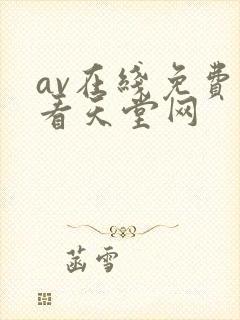 av在线免费
看天堂网
菡雪